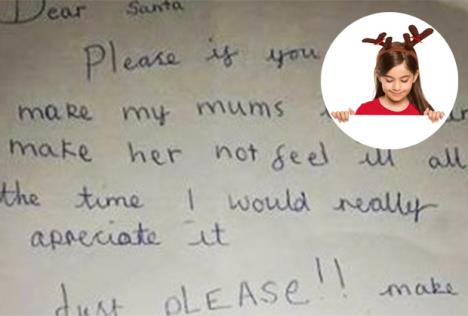 Dear Santa
Please if you
make my mums
make her not feel ill all
the time I would really
apreciate it
Just PLEASE!! make